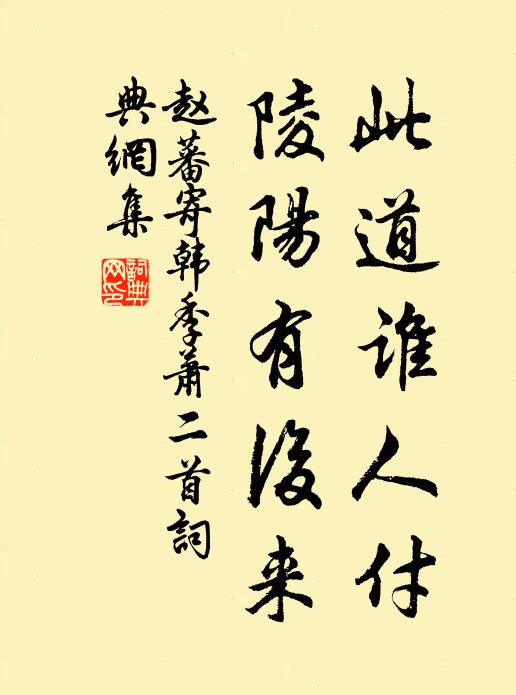 此道谁人付
陵陽有後来
赵蕃寄韩季萧二首詞
典網集
詞典
网印